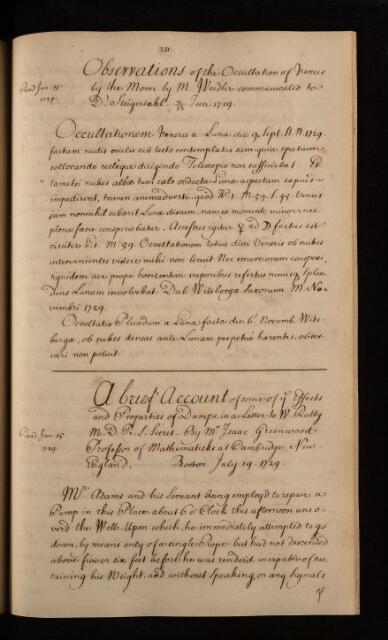 331
Observations of the Occultation of Venus
Read Jan: 15
1729.
by the Moon by M. Weidler communicated to
Dr. Steigertahl. Jan. 1729.
Occultationem Veneris a Luna die 9. Sept. St. N. 1729
factam nudis oculis contemplatus sum quia spatium
collocando recteque dirigendo Telescopio non sufficiebat. Et
tametsi nubes albae tum caelo obductae Lunae aspectum
impedirent, tamen animadverti quod H. 1. M. 59. S. 95 Venus
jam nonnihil subierit Lunae discum, nam eo momento minor nec
plenae faciei conspiciebatur. Accessus igitur ♀ ad ☽ factus est
circiter h. 1. M. 59. Occultationem totius disci Veneris ob nubes
intervenientes videre mihi non licuit Nec emersionem conspexi,
siquidem aer prope horizontem vaporibus refertus nimis splen
dens Lunam involvebat. Dab. Witebergae Saxonum. M. No-
vembri 1729.
Occultatio Pleiadum a Luna facta die 6. Novemb. Wite-
bergae, ob nubes densas ante Lunam perpetuo haerentes, obser-
vari non potuit.
A brief Account of some of ye Effects
and Properties of Damps, in a Letter to Wm Rutty
M. D. R. S. Secret. By Mr Isaac Greenwood
Read Jan. 15
1729.
Professor of Mathematicks at Cambridge, New-
England. Boston July 19. 1729.
Mr. Adams and his Servant being employ'd to repair a
Pump in this Place about 6 o'Clock this afternoon unco-
verd the Well. Upon which, he immediately attempted to go
down, by means only of a single Rope but had not descended
above five or six feet before he was renderd incapable of sus-
taining his Weight, and without Speaking, or any Signals
of